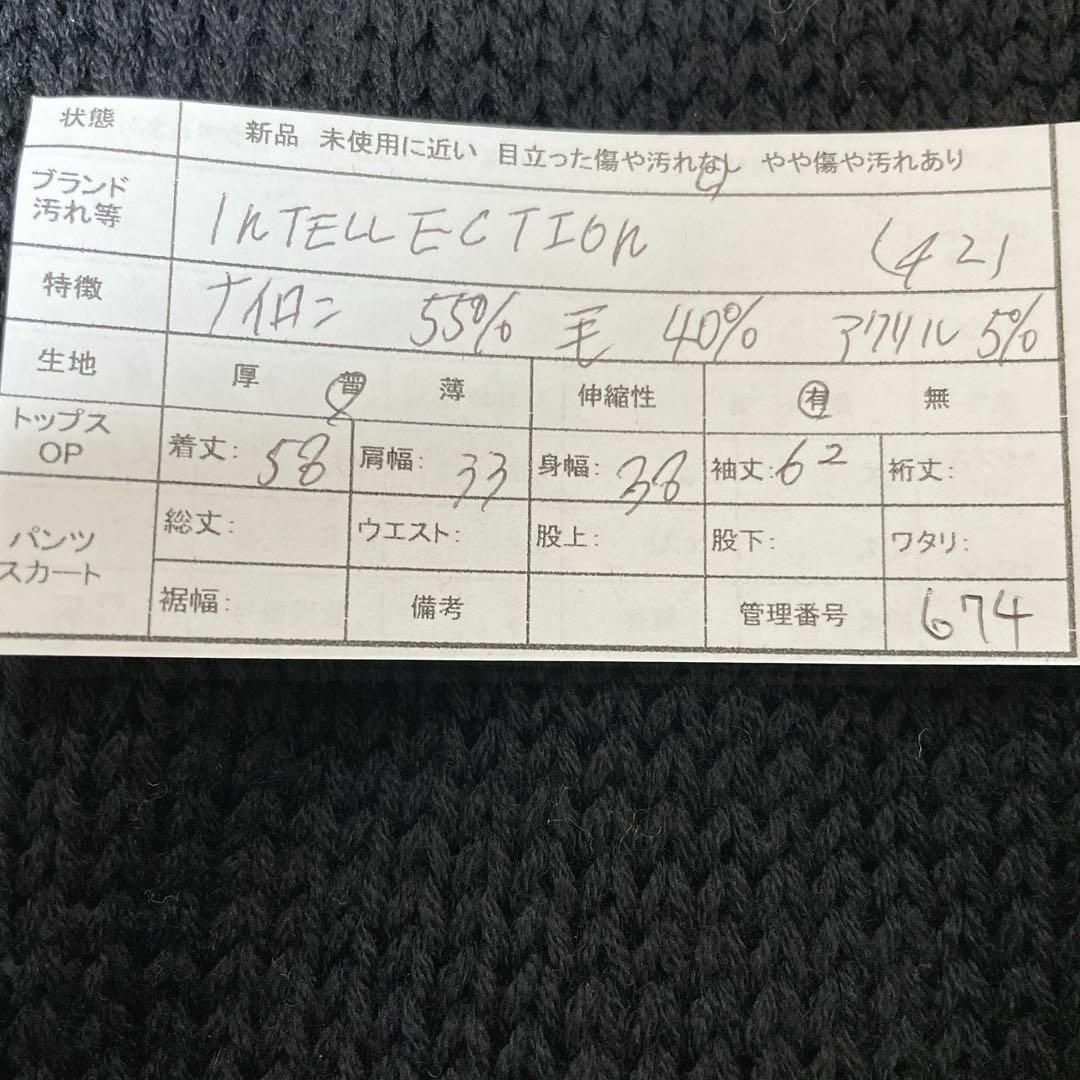 状態 新品 未使用に近い 目立った傷や汚れなし やや傷や汚れあり
ブランド
汚れ等 InTELLECTIOn (42)
特徴 ナイロン 55% 毛 40% アクリル 5%
生地 厚 普 薄 伸縮性 有 無
トップス
OP 着丈: 58 肩幅: 33 身幅: 38 袖丈: 62 裄丈:
パンツ
スカート 総丈: ウエスト: 股上: 股下: ワタリ:
裾幅: 備考 管理番号 674